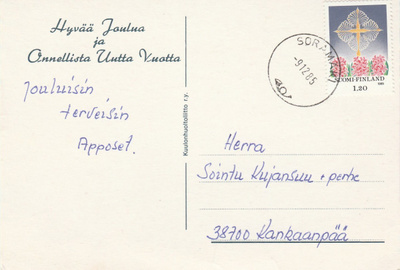 Hyvää Joulua
ja
Onnellista Uutta Vuotta
Jouluisin
terveisin
Apposet.
Kuulonhuoltoliitto r.y.
-91285
SUOMI-FINLAND
1.20
Herra
Sointu Kujansuu + perhe
38700 Kankaanpää